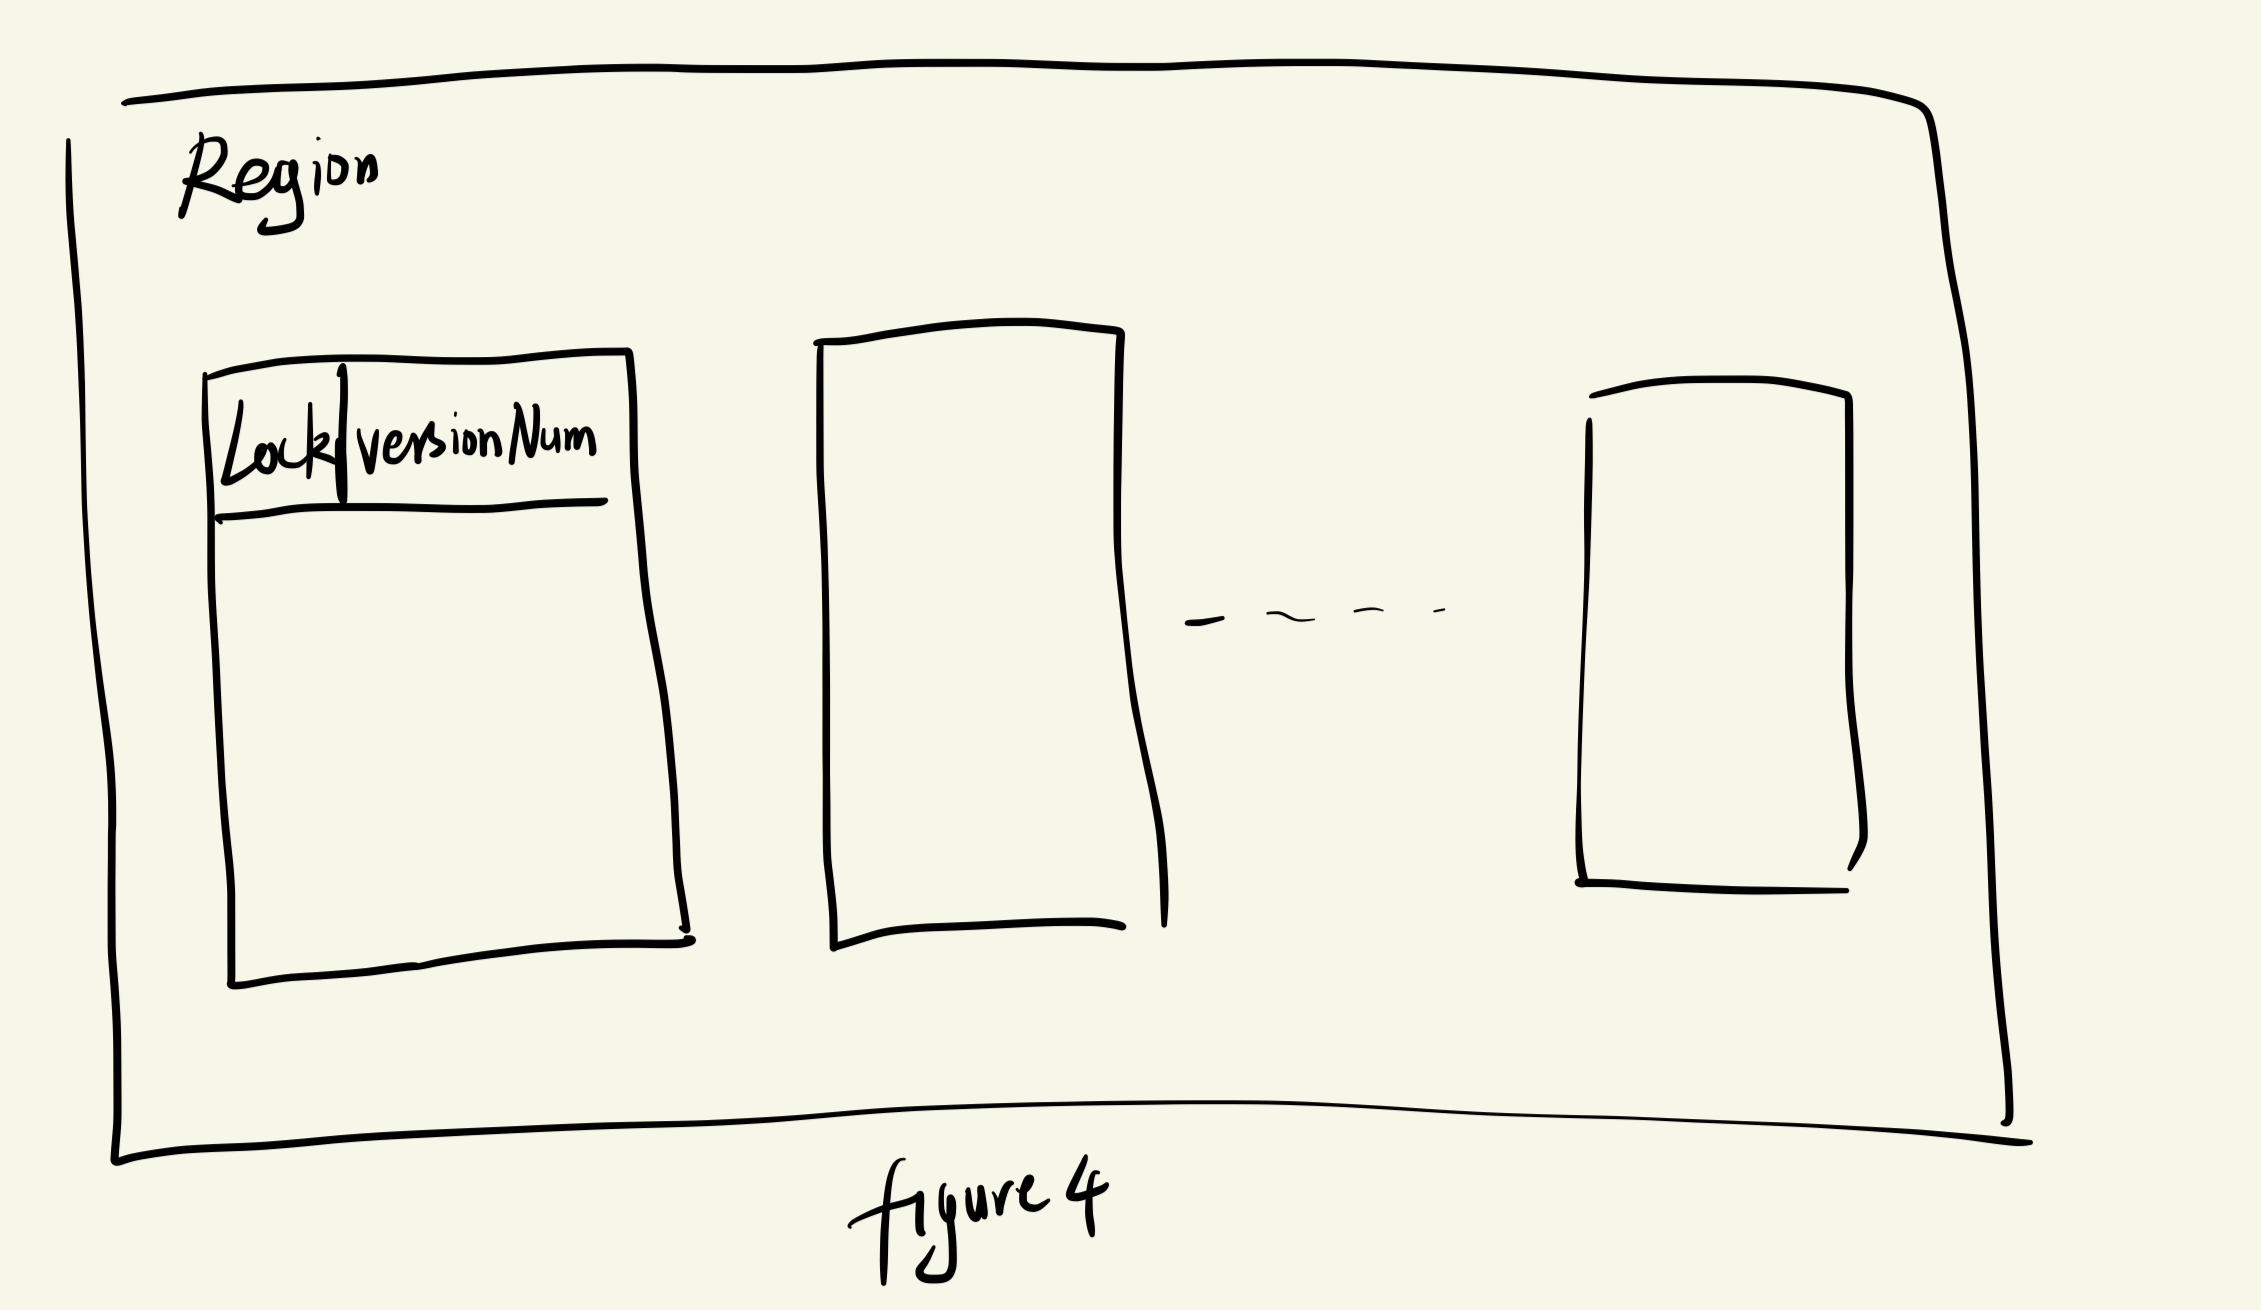 Region
Lock versionNum
figure 4